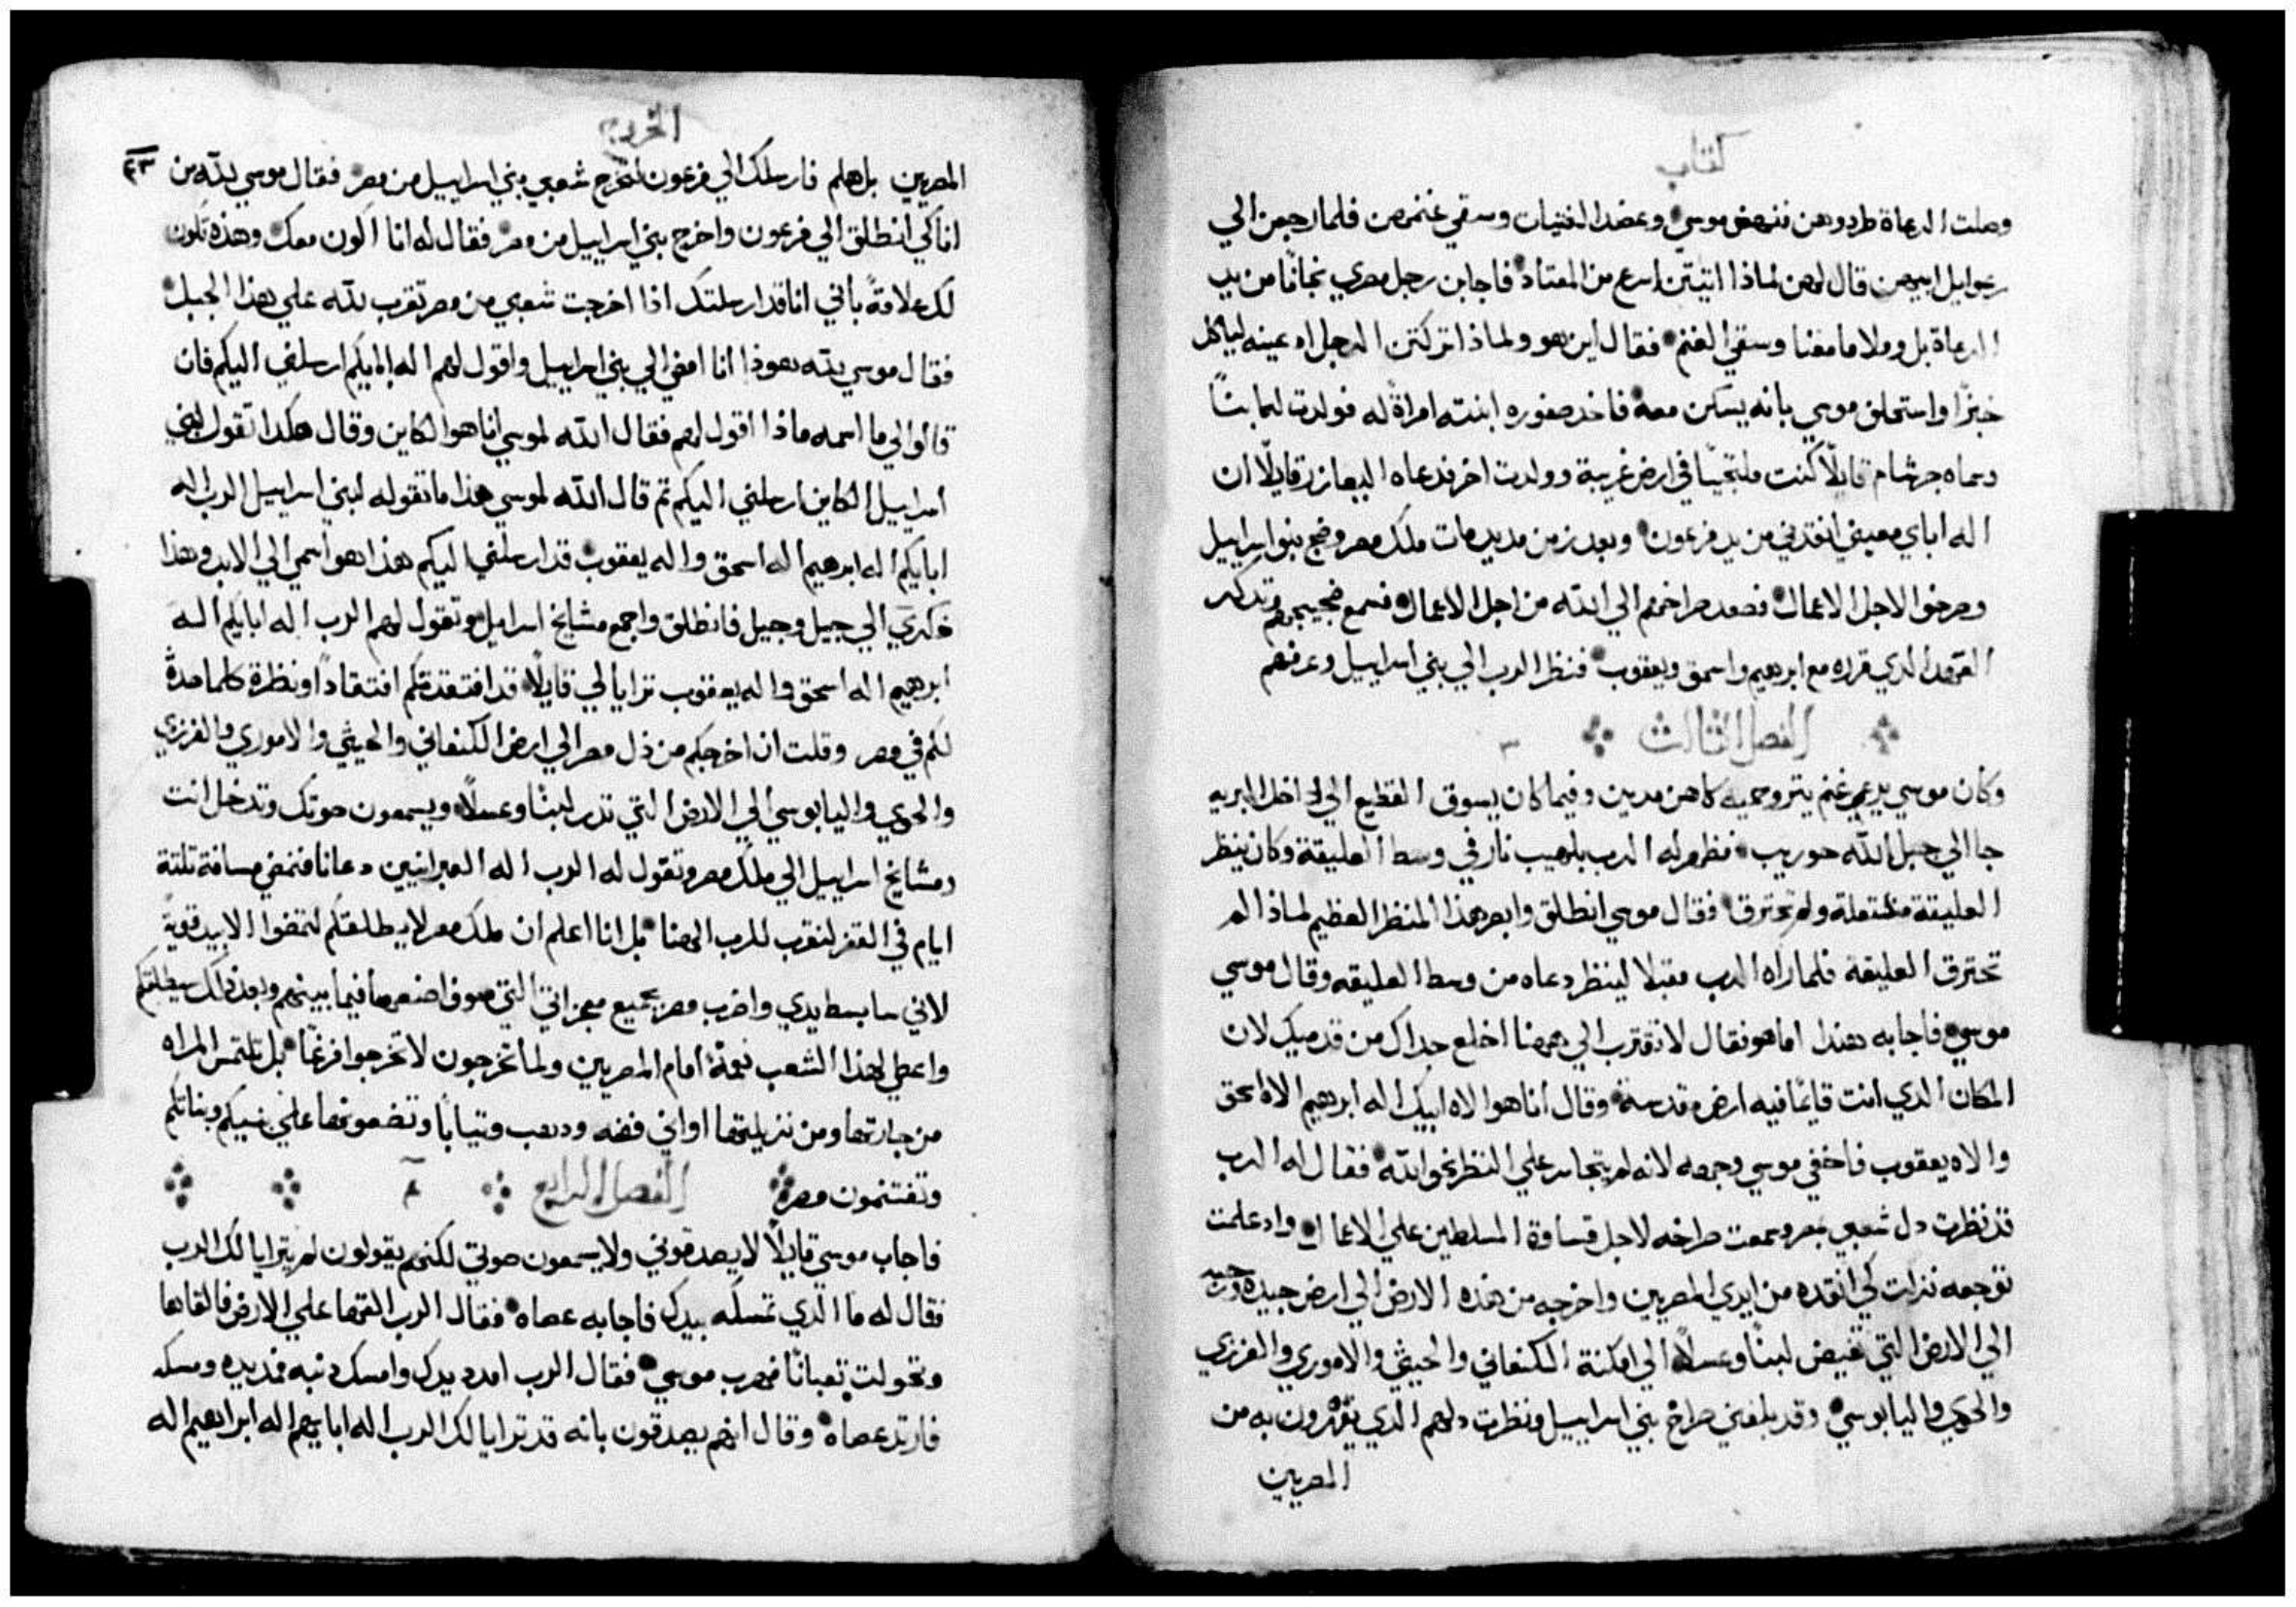 كتاب
وصلت الرعاة طردوهن فنهض موسي وعضد الفتيات وسقي غنمهن فلما رجعن الي
رعوايل ابيهن قال لهن لماذا اتيتن اسرع من المعتاد فاجابن رجل مصري نجانا من يد
الرعاة بل وملا ما معنا وسقي الغنم فقال اين هو ولماذا تركتن الرجل ادعينه لياكل
خبزًا واستحلف موسي بانه يسكن معه فاخد صفوره ابنته امراةً له فولدت لها بنًا
دعاه جرشام قايلًا كنت ملتجيًا في ارض غريبة وولدت اخر فدعاه اليعازر قايلًا ان
اله اباي معيني انقدني من يد فرعون وبعد زمن مديد مات ملك مصر وضج بنو اسراييل
وصرخوا لاجل الاعمال فصعد صراخهم الي الله من اجل الاعمال فسمع ضجيجهم وتدكر
العهد الدي قرره مع ابرهيم واسحق ويعقوب فنظر الرب الي بني اسراييل وعرفهم
الفصل الثالث ٣
وكان موسي يرعي غنم يترو حميه كاهن مدين وفيما كان يسوق القطيع الي داخل البريه
جا الي جبل الله حوريب فظهر له الرب بلهيب نار في وسط العليقة وكان ينظر
العليقة مشتعلة ولم تحترق فقال موسي انطلق وابصر هذا المنظر العظيم لماذا لم
تحترق العليقة فلما راه الرب مقبلا لينظر دعاه من وسط العليقه وقال موسي
موسي فاجابه هندا اما هو فقال لا تقترب الي ههنا اخلع حداك من قدميك لان
المكان الدي انت قايمًا فيه ارض مقدسة وقال انا هو الاه ابيك اله ابرهيم الاه اسحق
والاه يعقوب فاخفي موسي وجهه لانه لم يتجاسر علي النظر نحو الله فقال له الرب
قد نظرت دل شعبي بمصر وسمعت صراخه لاجل قساوة المسلطين علي الاعمال واد علمت
توجعه نزلت لكي انقده من ايدي المصريين واخرجه من هذه الارض الي ارض جيده
الي الارض التي تفيض لبنًا وعسلًا الي امكنة الكنعاني والحيثي والاموري والفرزي
والحوي واليابوسي وقد بلغني صراخ بني اسراييل ونظرت دلهم الدي يقهرون به من
المصريين
الخروج
٤٣
المصريين بل هلم فارسلك الي فرعون لتخرج شعبي بني اسراييل من مصر فقال موسي لله من
انا لكي انطلق الي فرعون واخرج بني اسراييل من مصر فقال له انا اكون معك وهذه تكون
لك علامةً باني انا قد ارسلتك اذا اخرجت شعبي من مصر تقرب لله علي هذا الجبل
فقال موسي لله هوذا انا امضي الي بني اسراييل واقول لهم اله ابايكم ارسلني اليكم فان
قالوا لي ما اسمه ماذا اقول لهم فقال الله لموسي انا هو الكاين وقال هكدا تقول لبني
اسراييل الكاين ارسلني اليكم تم قال الله لموسي هذا ما تقوله لبني اسراييل الرب اله
ابايكم اله ابرهيم اله اسحق واله يعقوب قد ارسلني اليكم هذا هو اسمي الي الابد وهذا
ذكري الي جيل وجيل فانطلق واجمع مشايخ اسراييل وتقول لهم الرب اله ابايكم اله
ابرهيم اله اسحق واله يعقوب ترايا لي قايلًا قد افتقدتكم افتقادًا ونظرة كلما حدة
لكم في مصر وقلت ان اخرجكم من ذل مصر الي ارض الكنعاني والحيثي والاموري والفرزي
والحوي واليابوسي الي الارض التي تدر لبنًا وعسلًا ويسمعون صوتك وتدخل انت
ومشايخ اسراييل الي ملك مصر وتقول له الرب اله العبرانيين دعانا فنمضي مسافة تلتة
ايام في القفر لنقرب للرب الهنا بل انا اعلم ان ملك مصر لا يطلقكم لتمضوا الا بيد قوية
لاني سابسط يدي واضرب مصر بجميع معجزاتي التي سوف اصنعها فيما بينهم وبعد ذلك سيطلقكم
واعطي لهذا الشعب نعمةً امام المصريين ولما تخرجون لا تخرجوا فرغًا بل تلتمس المراه
من جارتها ومن نزيلتها اواني فضه ودهب وتيابًا وتضعونها علي بنيكم وبناتكم
وتغتنمون مصر الفصل الرابع ٤
فاجاب موسي قايلًا لا يصدقوني ولا يسمعون صوتي لكنهم يقولون لم يترايا لك الرب
فقال له ما الدي تمسكه بيدك فاجابه عصاه فقال الرب القها علي الارض فالقاها
وتحولت تعبانًا فهرب موسي فقال الرب امدد يدك وامسك دنبه فمد يده ومسكه
فارتد عصاه وقال انهم يصدقون بانه قد ترايا لك الرب اله ابايهم اله ابراهيم اله